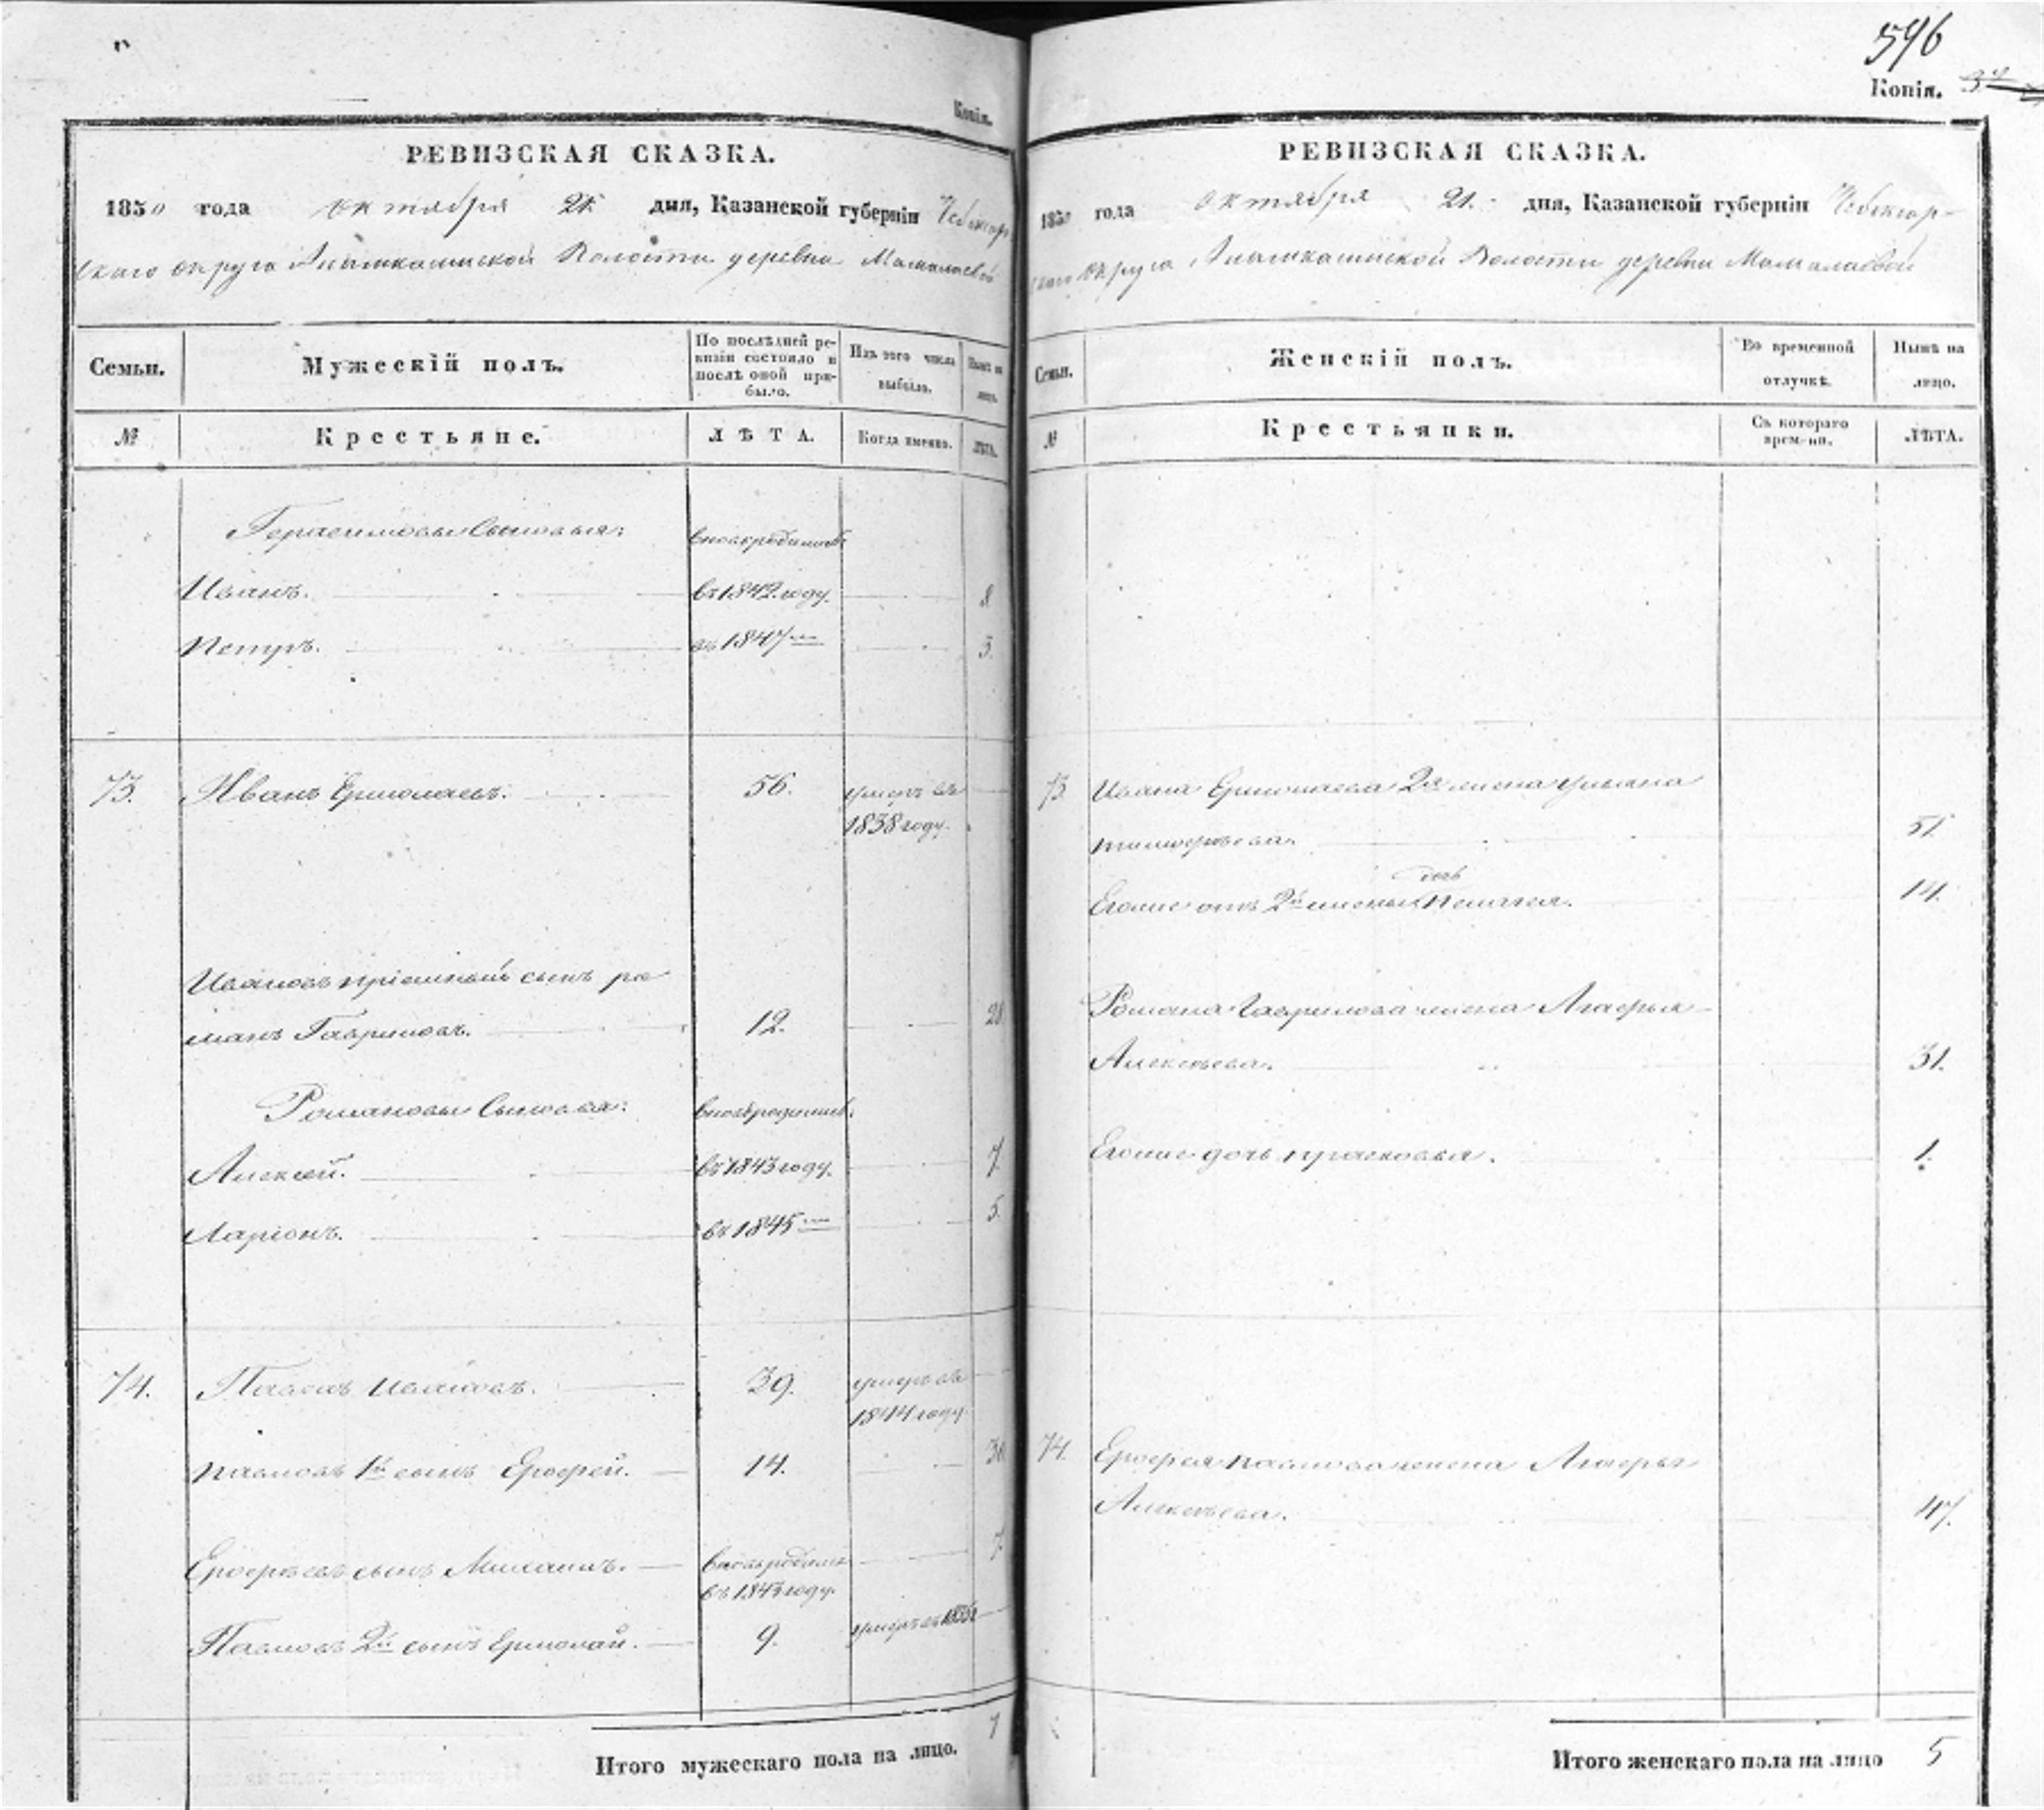 Копія.
РЕВИЗСКАЯ СКАЗКА.
1850 года октября 21 дня, Казанской губерніи Чебоксар-
скаго округа Волости деревни
Семьи.
Мужескій полъ.
По послѣдней ре-
визіи состояло и
послѣ оной при-
было.
Изъ того числа
выбыло.
Нынѣ на
лицо.
№
Крестьяне.
ЛѢТА.
Когда именно.
ЛѢТА.
Герасимовы Сыновья:
вновьрожденный
Иванъ. въ 1842 году. 8
Петръ. въ 1847 3.
73. Иванъ Ермолаевъ. 56. умеръ въ
1838 году.
Ивановъ пріемный сынъ ро
манъ Гавриловъ. 12. 28
Романовы Сыновья:
Алексѣй. въ 1843 году. 7
Ларіонъ. въ 1845 5.
74. Павелъ Ивановъ. 39. умеръ въ
1844 году.
Павловъ 1й сынъ Ерофей. 14. 30
Ерофѣевъ сынъ Михаилъ. 7.
въ 1843 году.
Павловъ 2й сынъ Ермолай. 9. умеръ въ
7
Итого мужескаго пола на лицо.
596
Копія.
РЕВИЗСКАЯ СКАЗКА.
1850 года октября 21. дня, Казанской губерніи Чебоксар-
скаго округа Волости деревни
Семьи.
Женскій полъ.
Во временной
отлучкѣ.
Нынѣ на
лицо.
№
Крестьянки.
Съ котораго
времени.
ЛѢТА.
73 Ивана Ермолаева 2я жена Ульяна
тимофѣева. 51.
дочь
Егоже отъ 2й жены Пелагея. 14.
Романа Гаврилова жена Агафья
Алексѣева. 31.
Егоже дочь прасковья. 1.
74. Ерофея Павлова жена Агафья
Алексѣева. 47.
Итого женскаго пола на лицо 5